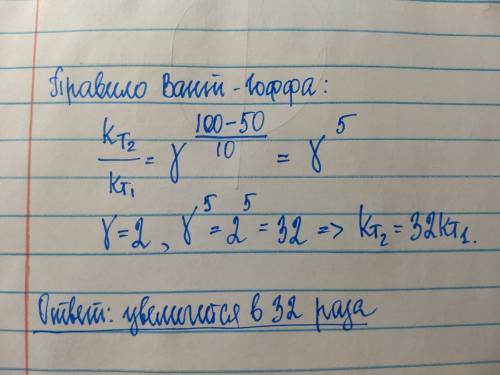 Правило Вант-Гоффа:
kT₂/kT₁ = γ^((100-50)/10) = γ^5
γ=2, γ^5=2^5=32 => kT₂=32kT₁.
Ответ: увеличится в 32 раза